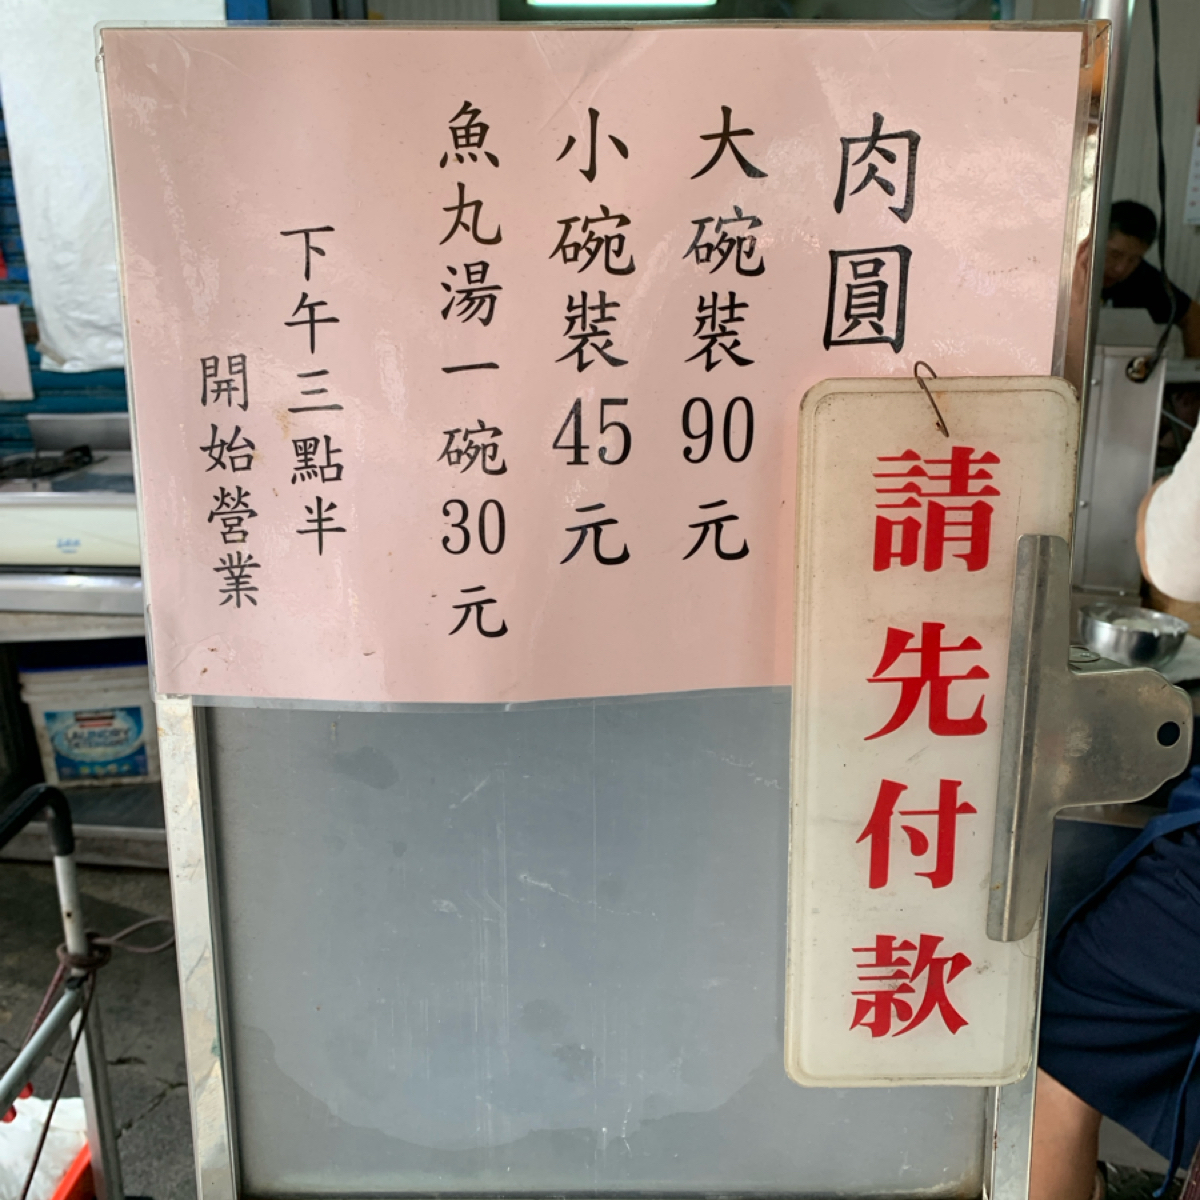 肉圓
大碗裝90元
小碗裝45元
魚丸湯一碗30元
下午三點半
開始營業
請先付款
LAUNDRY
DETERGENT